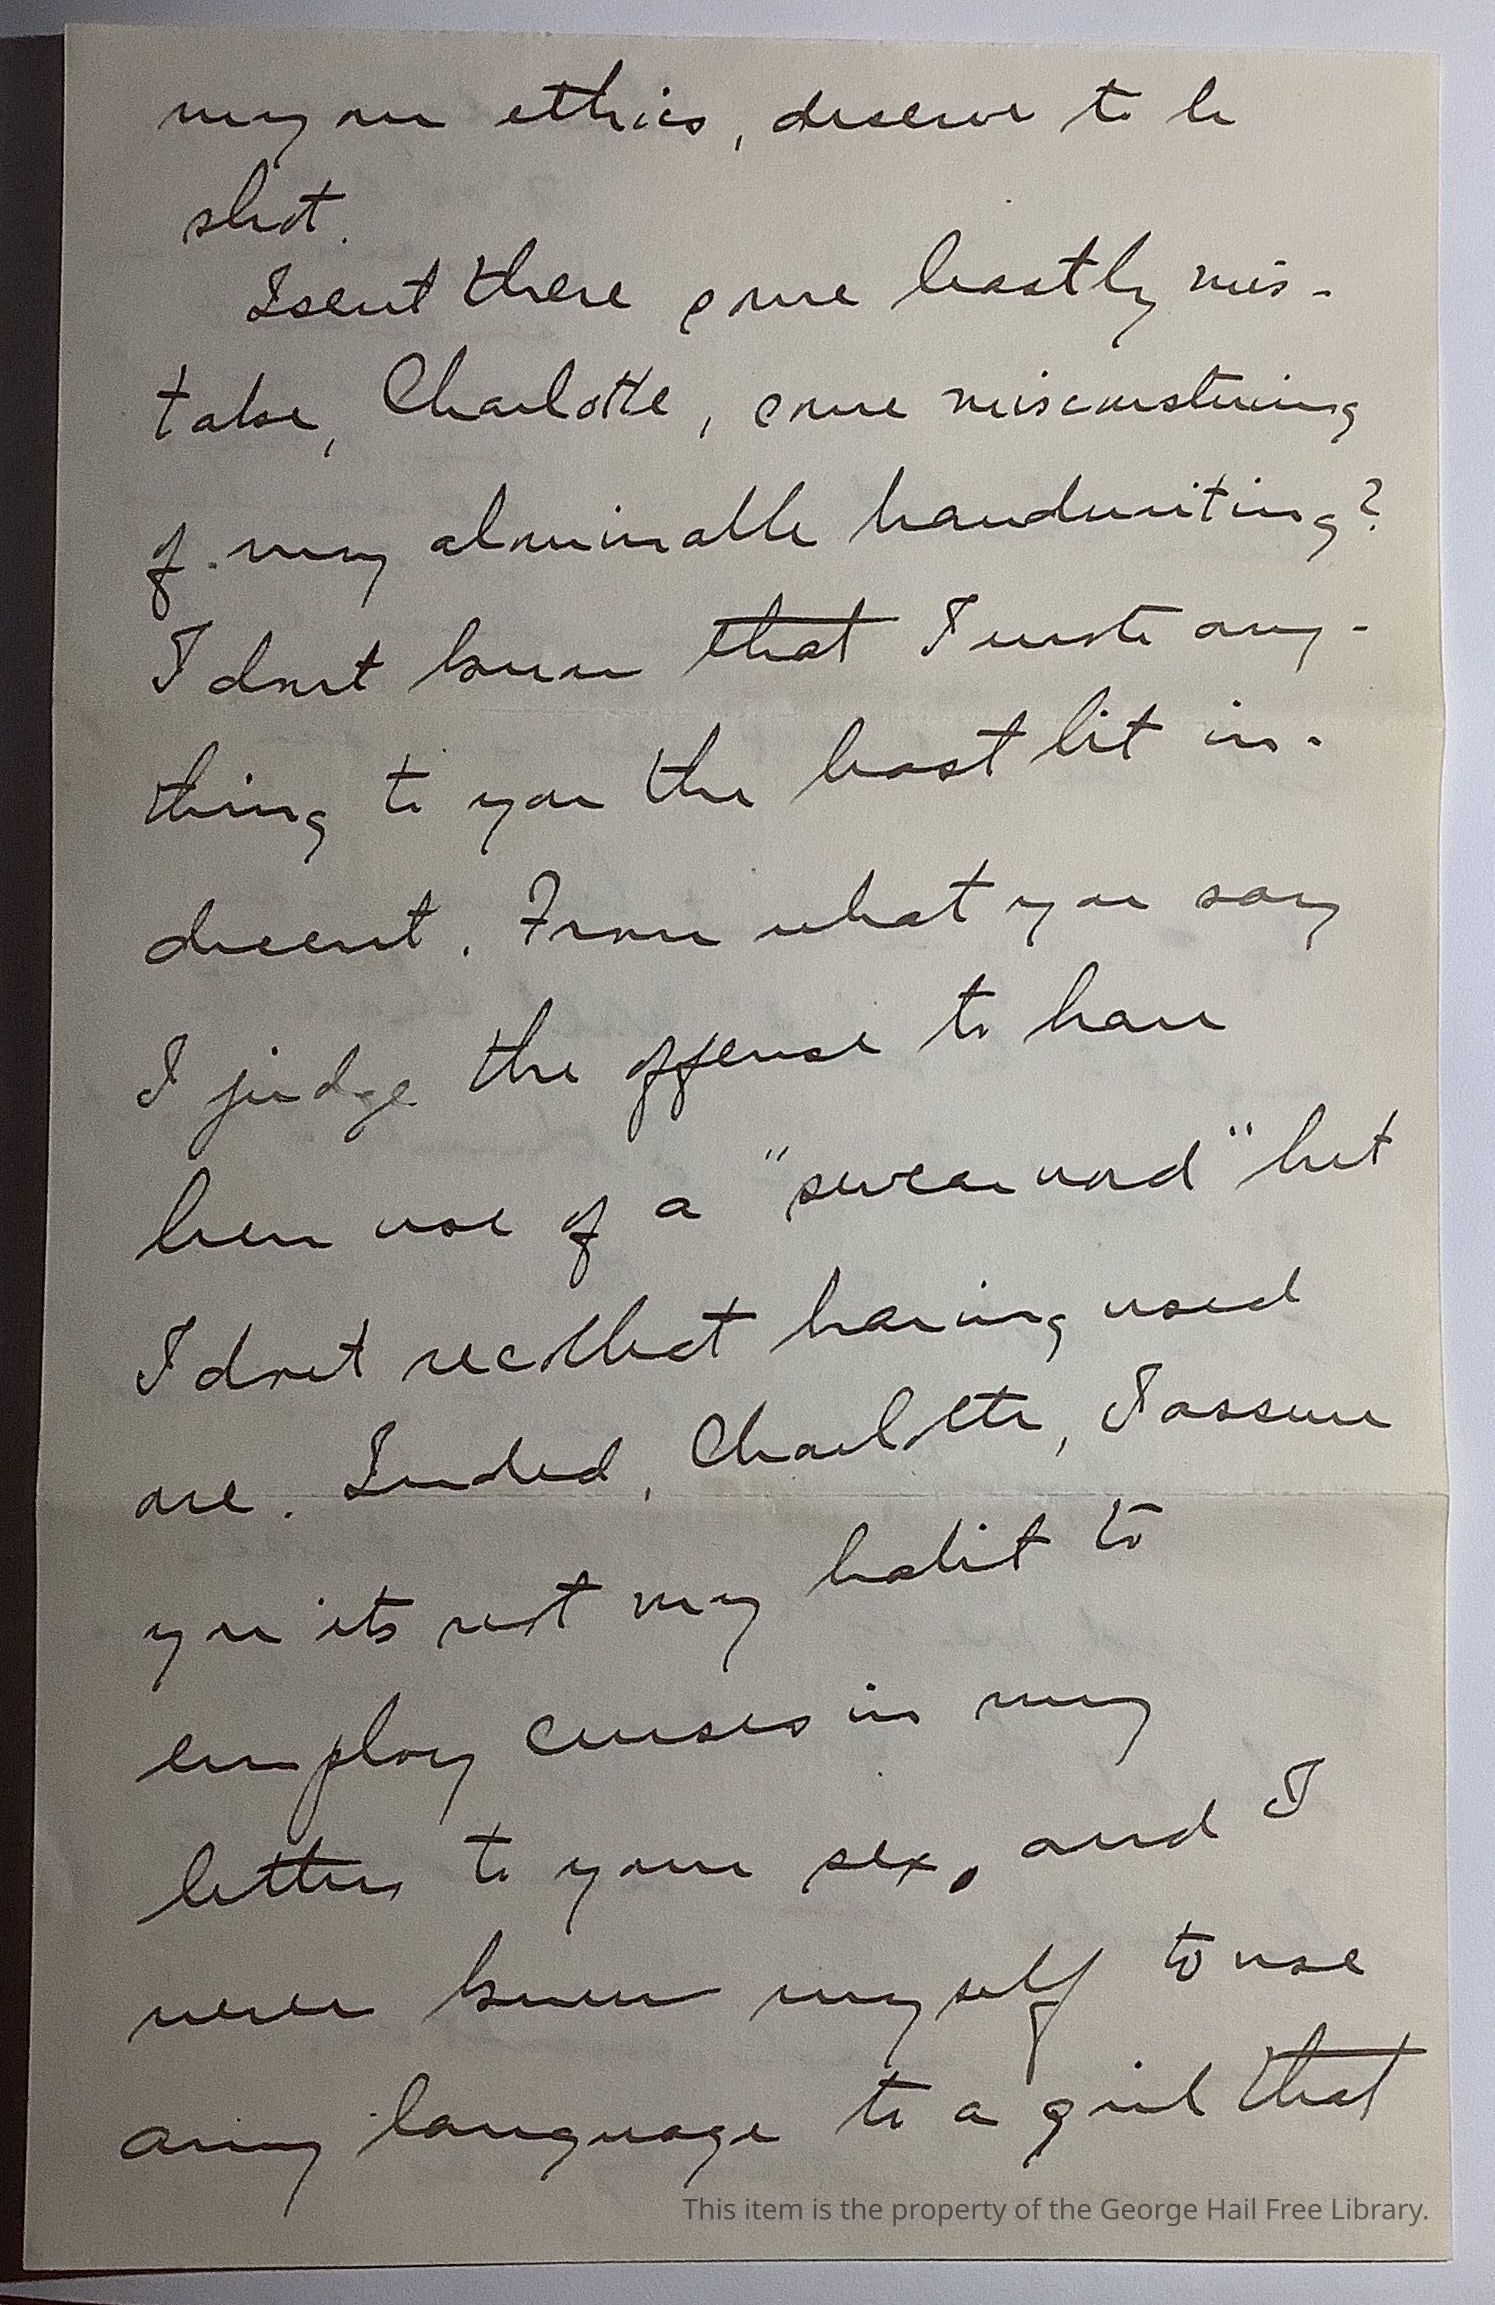 my own ethics, deserve to be
shot.
Isent there some beastly mis-
take, Charlotte, some misconstruing
of my abominable handwriting?
I dont know that I wrote any-
thing to you the least bit in-
decent. From what you say
I judge the offense to have
been use of a "swear word" but
I dont recollect having used
one. Indeed, Charlotte, I assure
you its not my habit to
employ curses in my
letters to your sex, and I
never knew myself to use
any language to a girl that
This item is the property of the George Hail Free Library.